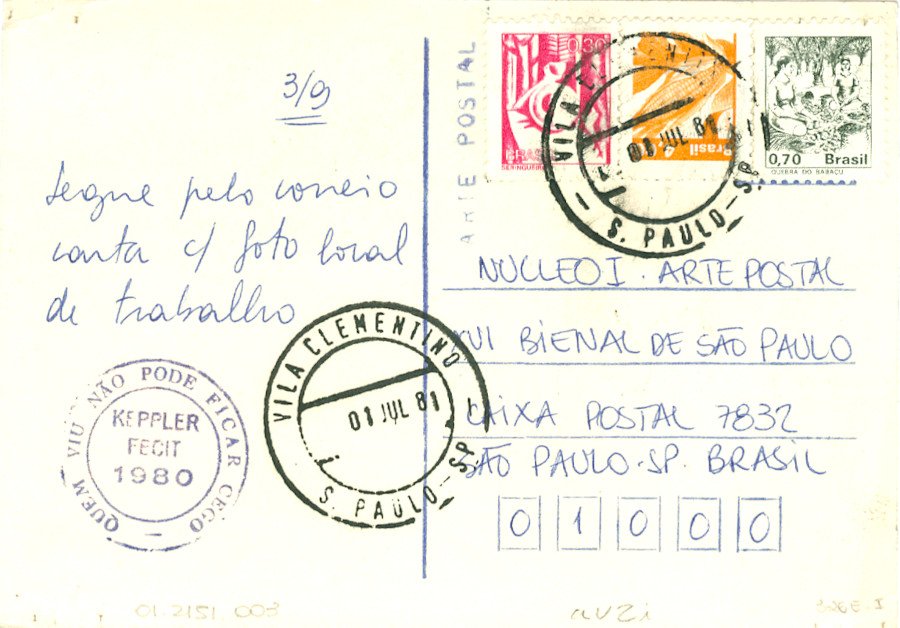 3/9
Segue pelo correio
carta c/ foto local
de trabalho
QUEM VIU NÃO PODE FICAR CEGO
KEPPLER
FECIT
1980
VILA CLEMENTINO
01 JUL 81
S. PAULO-SP
ARTE POSTAL
0,30
BRASIL
SERINGUEIRO
Brasil
0,70 Brasil
QUEBRA DO BABAÇU
VILA CLEMENTINO
01 JUL 81
S. PAULO-SP
NUCLEO I. ARTE POSTAL
XVI BIENAL DE SÃO PAULO
CAIXA POSTAL 7832
SÃO PAULO.SP. BRASIL
0 1 0 0 0
01.2151.003